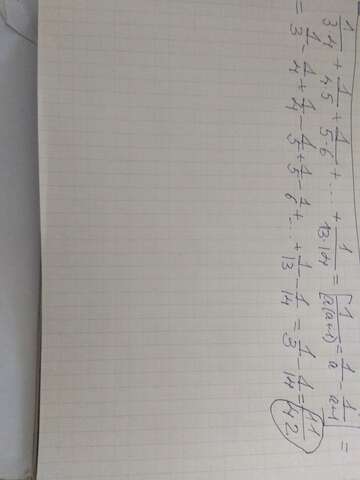 1/(3·4) + 1/(4·5) + 1/(5·6) + ... + 1/(13·14) = [1/(a(a+1)) = 1/a - 1/(a+1)] =
= 1/3 - 1/4 + 1/4 - 1/5 + 1/5 - 1/6 + ... + 1/13 - 1/14 = 1/3 - 1/14 = 11/42